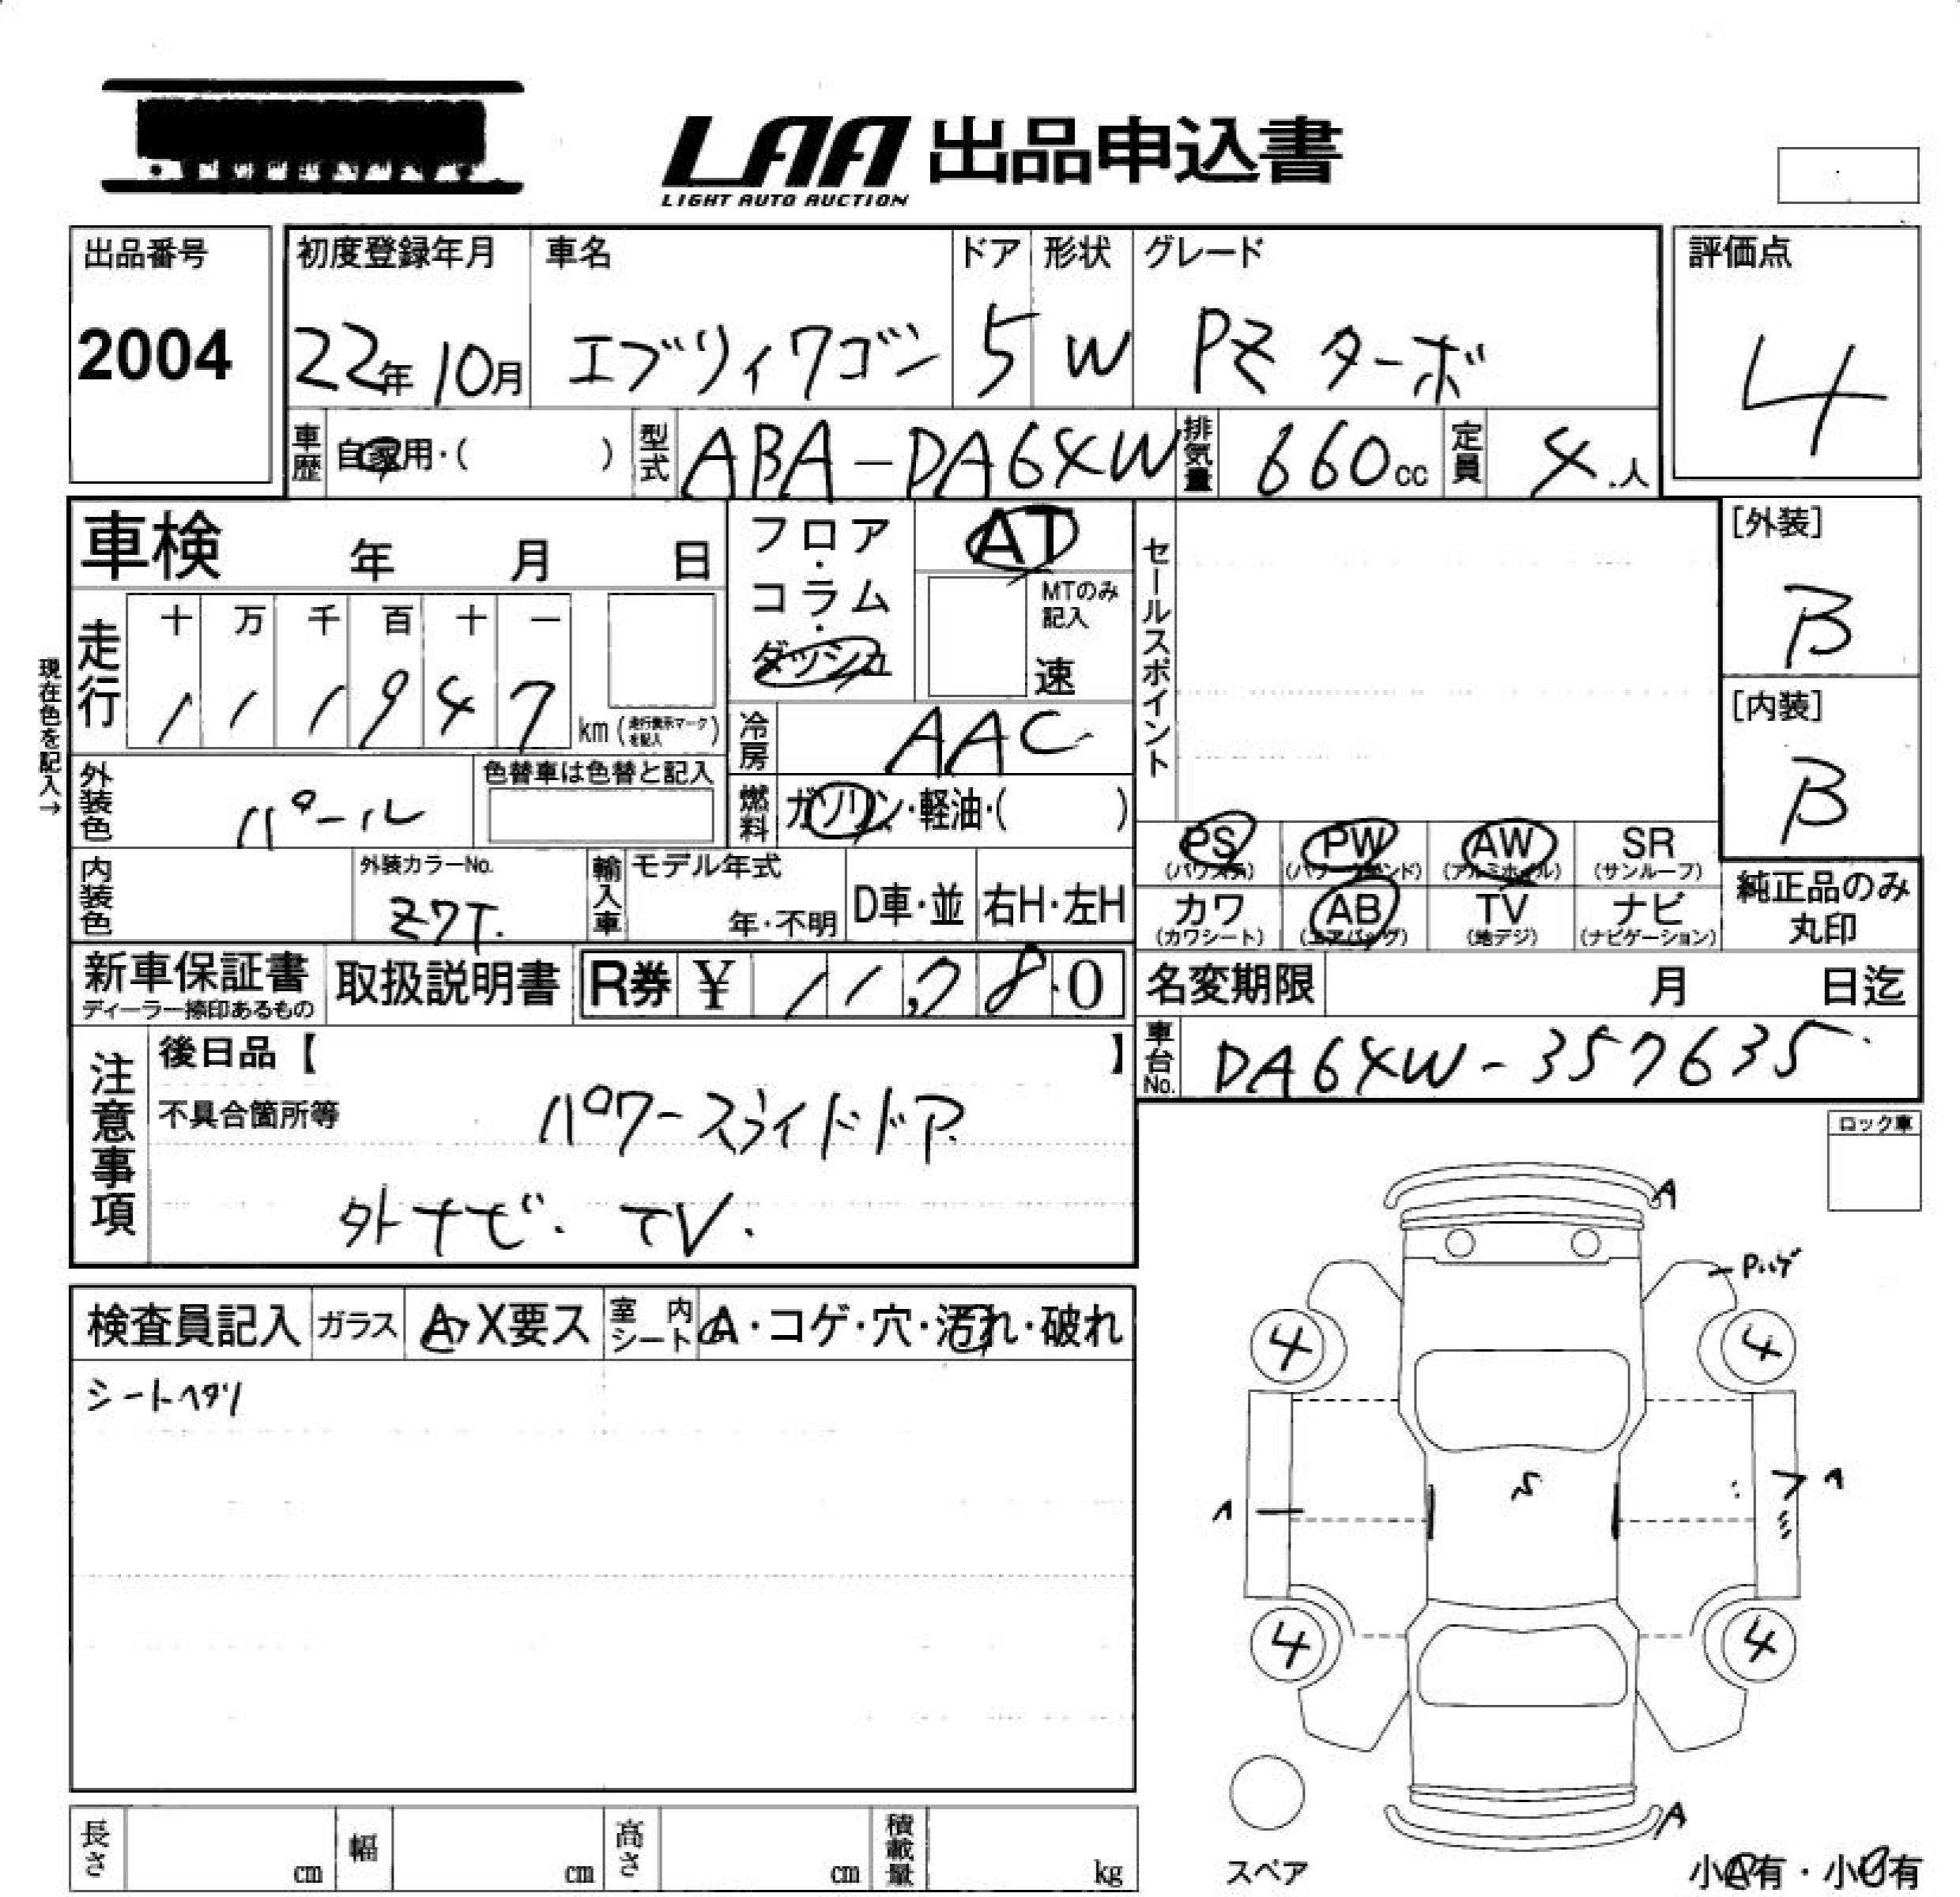 LAA 出品申込書
LIGHT AUTO AUCTION
出品番号
2004
初度登録年月 車名 ドア 形状 グレード
22年10月 エブリィワゴン 5 W PZ ターボ
評価点
4
車歴 自家用・( ) 型式 ABA-DA64W 排気量 660cc 定員 4.人
車検 年 月 日
フロア・コラム・ダッシュ
AT
MTのみ記入
速
セールスポイント
[外装]
B
[内装]
B
現在色を記入→
走行 十 万 千 百 十 一
111947 km(走行表示マークを記入)
冷房 AAC
外装色 パール 色替車は色替と記入
燃料 ガソリン・軽油・( )
PS(パワステ) PW(パワーウィンド) AW(アルミホイル) SR(サンルーフ)
カワ(カワシート) AB(エアバッグ) TV(地デジ) ナビ(ナビゲーション)
純正品のみ丸印
内装色 外装カラーNo. Z7T. 輸入車 モデル年式 年・不明 D車・並 右H・左H
新車保証書 ディーラー捺印あるもの 取扱説明書 R券 ¥ 11,780
名変期限 月 日迄
車台No. DA64W-357635
注意事項
後日品【 】
不具合箇所等 パワースライドドア
外ナビ. TV.
ロック車
検査員記入 ガラス A・X要ス 室内シート A・コゲ・穴・汚れ・破れ
シートヘタリ
A
Pハゲ
4 4
A
A
4 4
A
スペア
小A有・小U有
長さ cm 幅 cm 高さ cm 積載量 kg